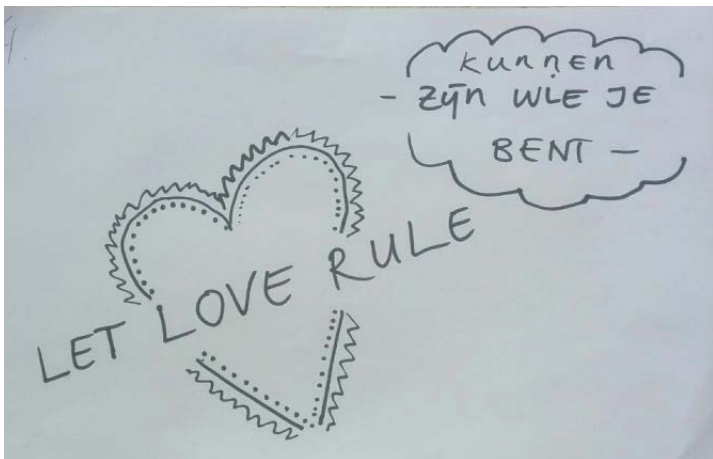 KUNNEN
- ZIJN WIE JE
BENT -
LET LOVE RULE